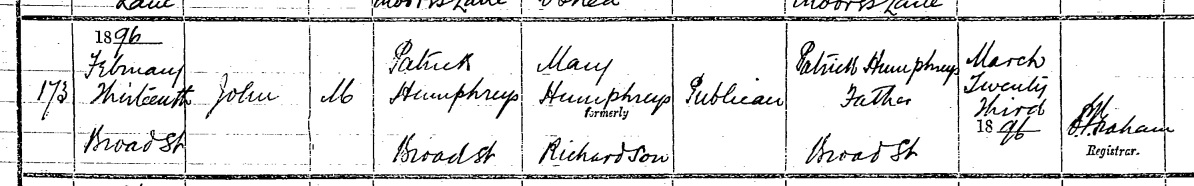 Lane
Moores Lane
Moores Lane
173
1896
February
Thirteenth
Broad St
John
M
Patrick
Humphreys
Broad St
Mary
Humphreys
formerly
Richardson
Publican
Patrick Humphreys
Father
Broad St
March
Twenty
Third
1896
Graham
Registrar.